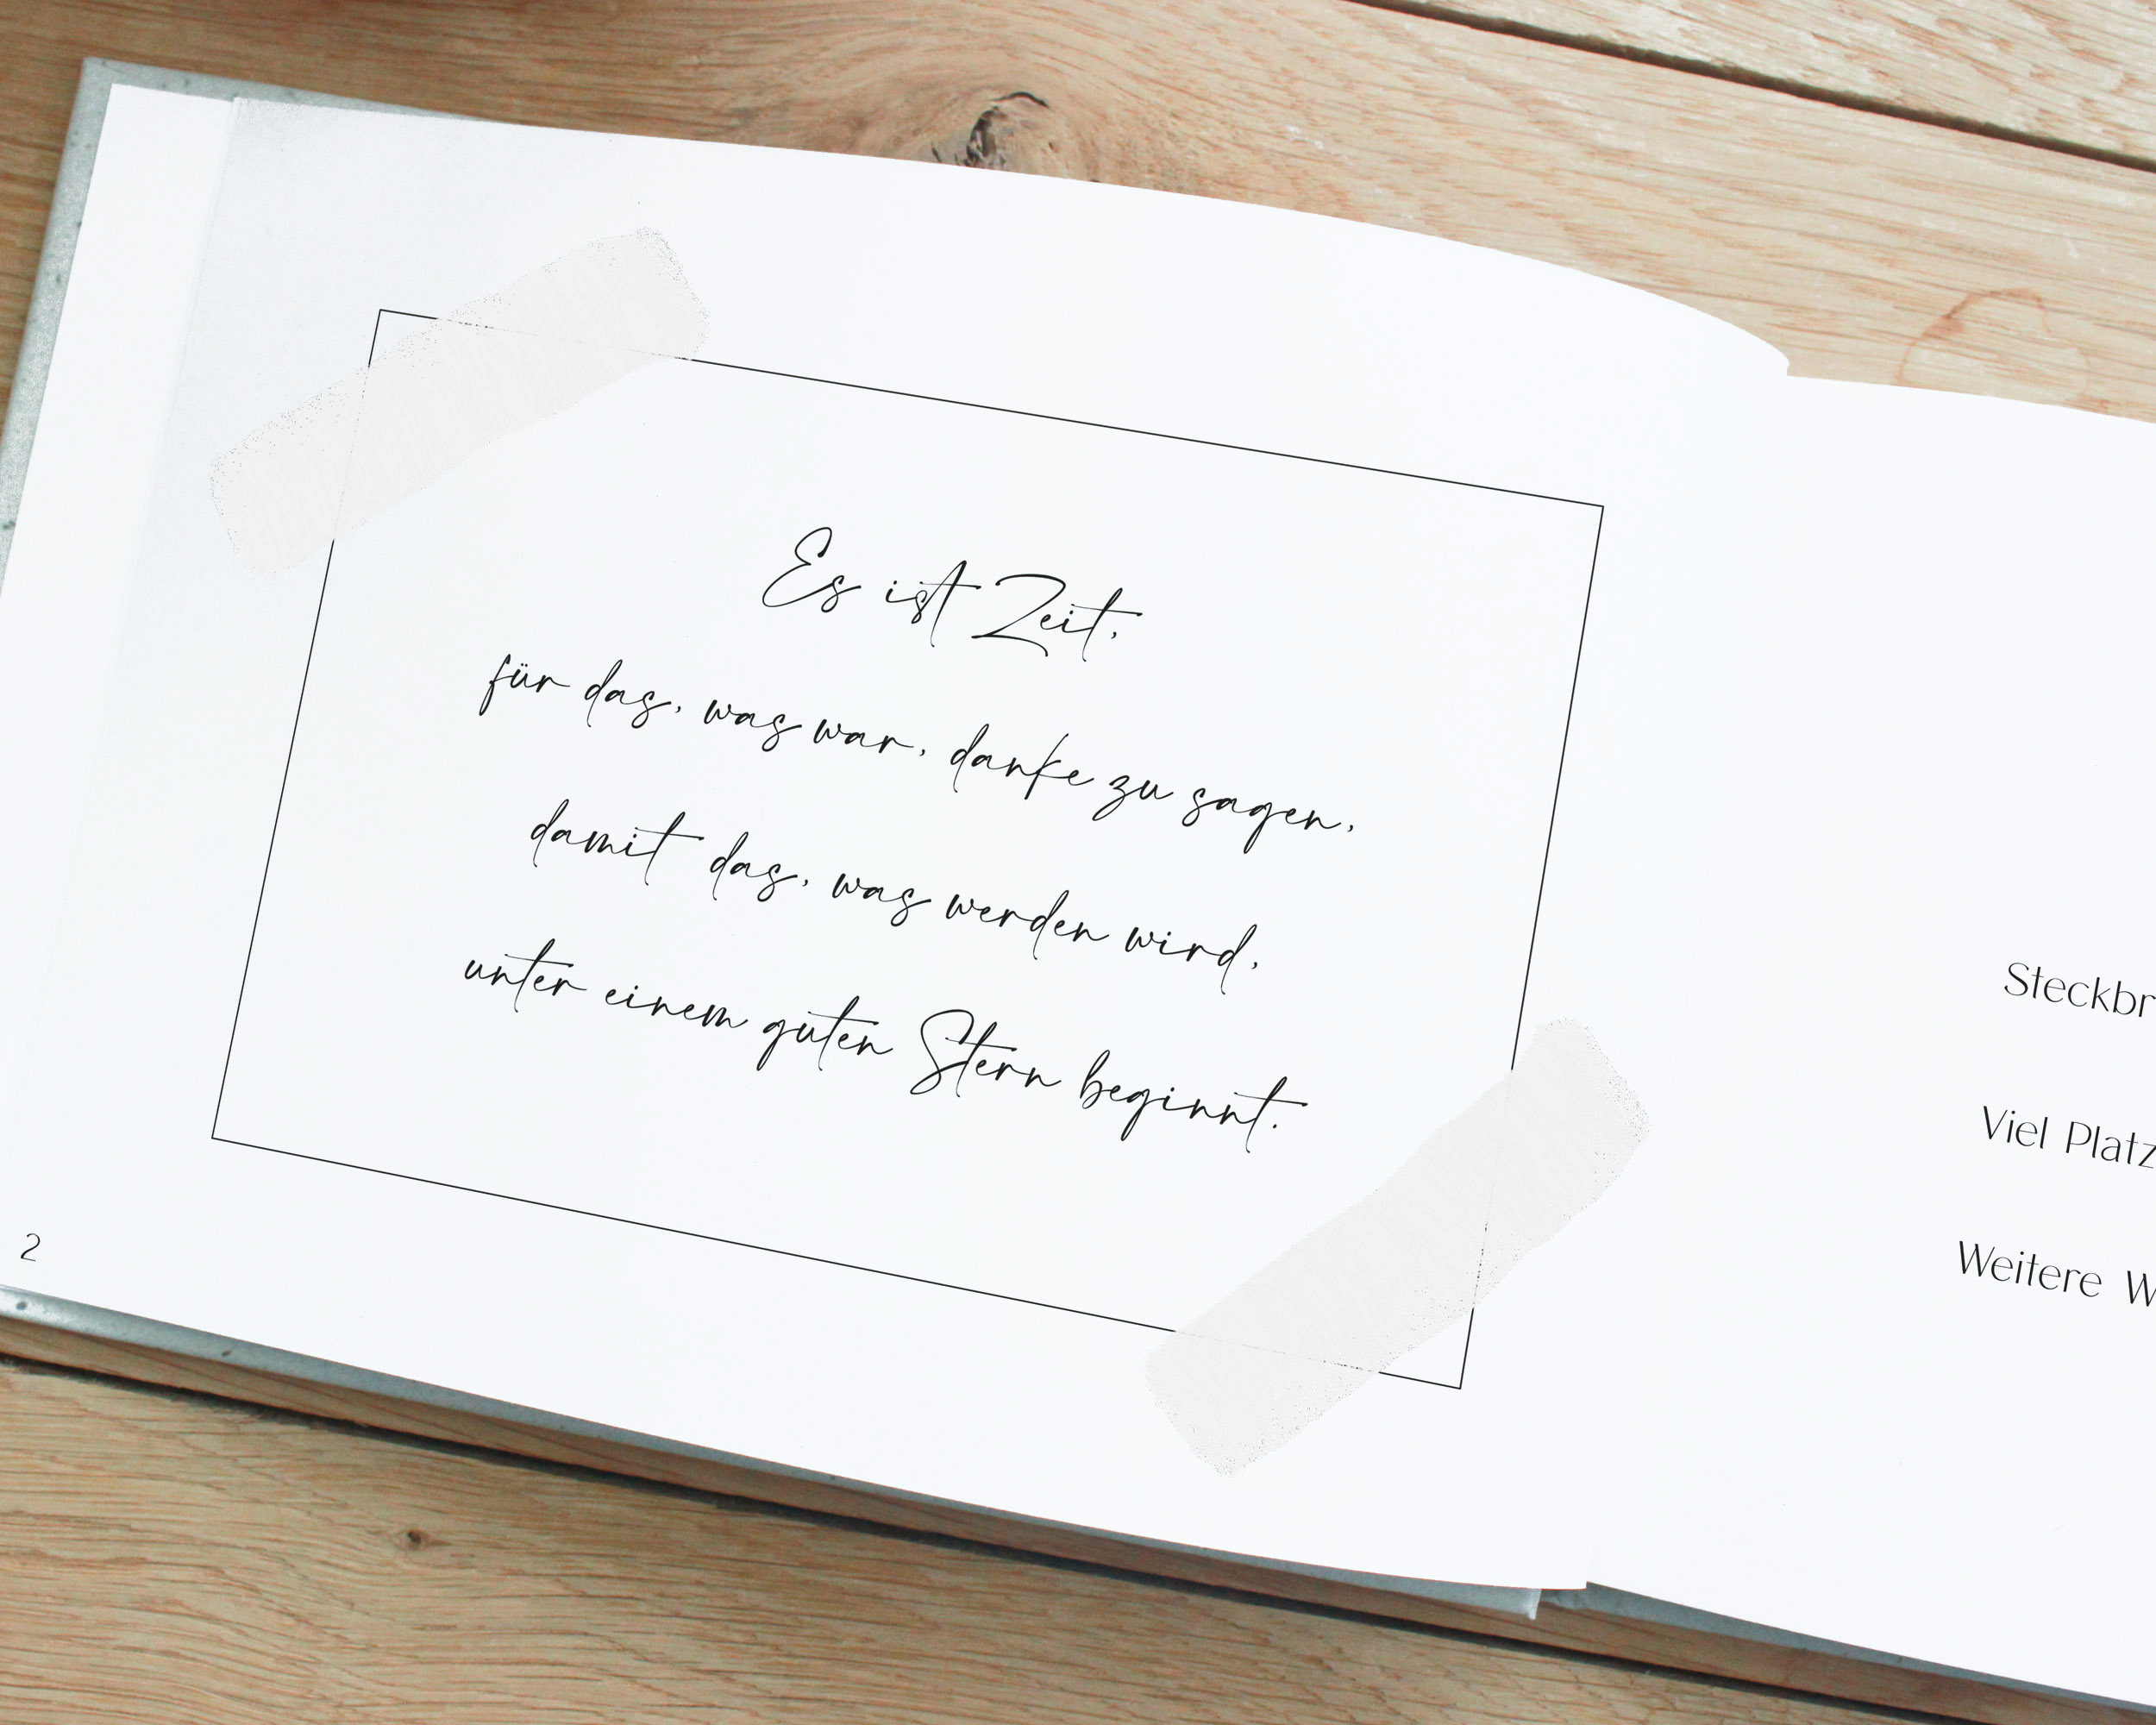 Es ist Zeit,
für das, was war, danke zu sagen,
damit das, was werden wird,
unter einem guten Stern beginnt.
2
Steckbr
Viel Platz
Weitere W